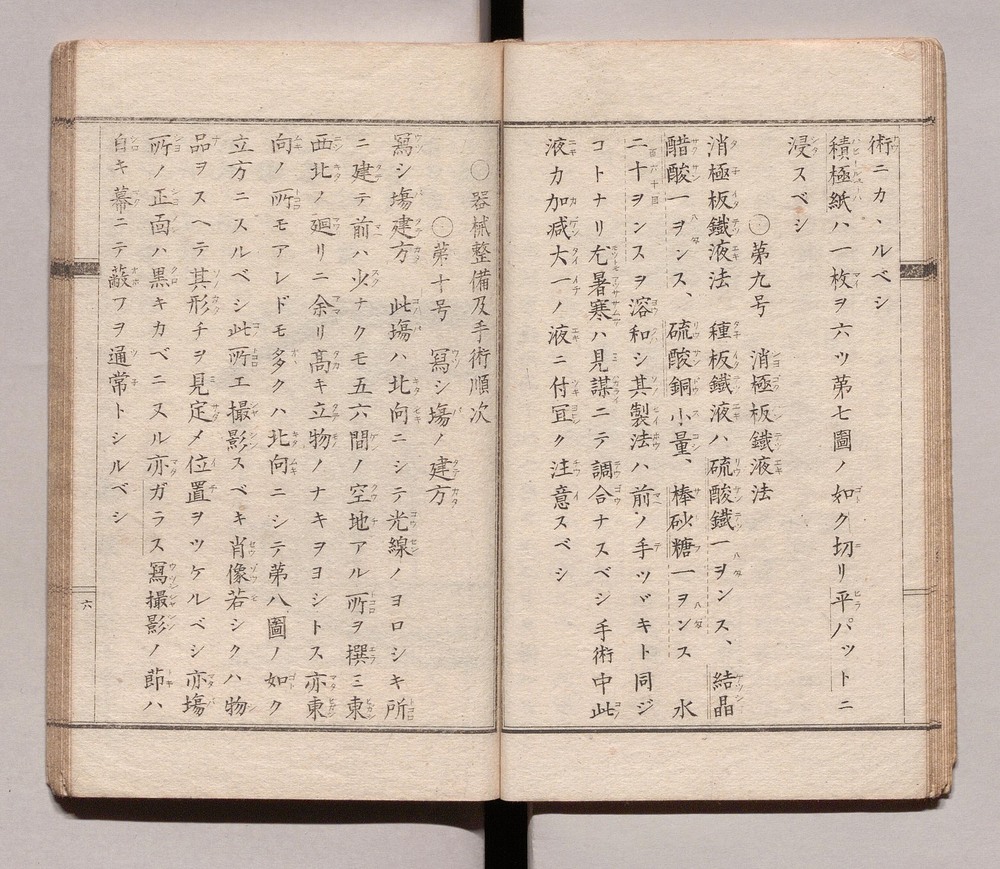 術ニカヽルベシ
積極紙ハ一枚ヲ六ツ第七圖ノ如ク切リ平パットニ
浸スベシ
〇第九号　消極板鐵液法
消極板鐵液法　種板鐵液ハ硫酸鐵一ヲンス、結晶
醋酸一ヲンス、硫酸銅小量、棒砂糖一ヲンス　水
二十ヲンスヲ溶和シ其製法ハ前ノ手ツヾキト同ジ
コトナリ尤暑寒ハ見謀ニテ調合ナスベシ手術中此
液カ加减大一ノ液ニ付冝ク注意スベシ
〇器械整備及手術順次
〇第十号　冩シ塲ノ建方
冩シ塲建方　此塲ハ北向ニシテ光線ノヨロシキ所
ニ建テ前ハ少ナクモ五六間ノ空地アル所ヲ撰ミ東
西北ノ廻リニ余リ髙キ立物ノナキヲヨシトス亦東
向ノ所モアレドモ多クハ北向ニシテ第八圖ノ如ク
立方ニスルベシ此所エ撮影スベキ肖像若シクハ物
品ヲスヘテ其形チヲ見定メ位置ヲツケルベシ亦塲
所ノ正面ハ黒キカベニヌル亦ガラス冩撮影ノ節ハ
白キ幕ニテ蔽フヲ通常トシルベシ
六